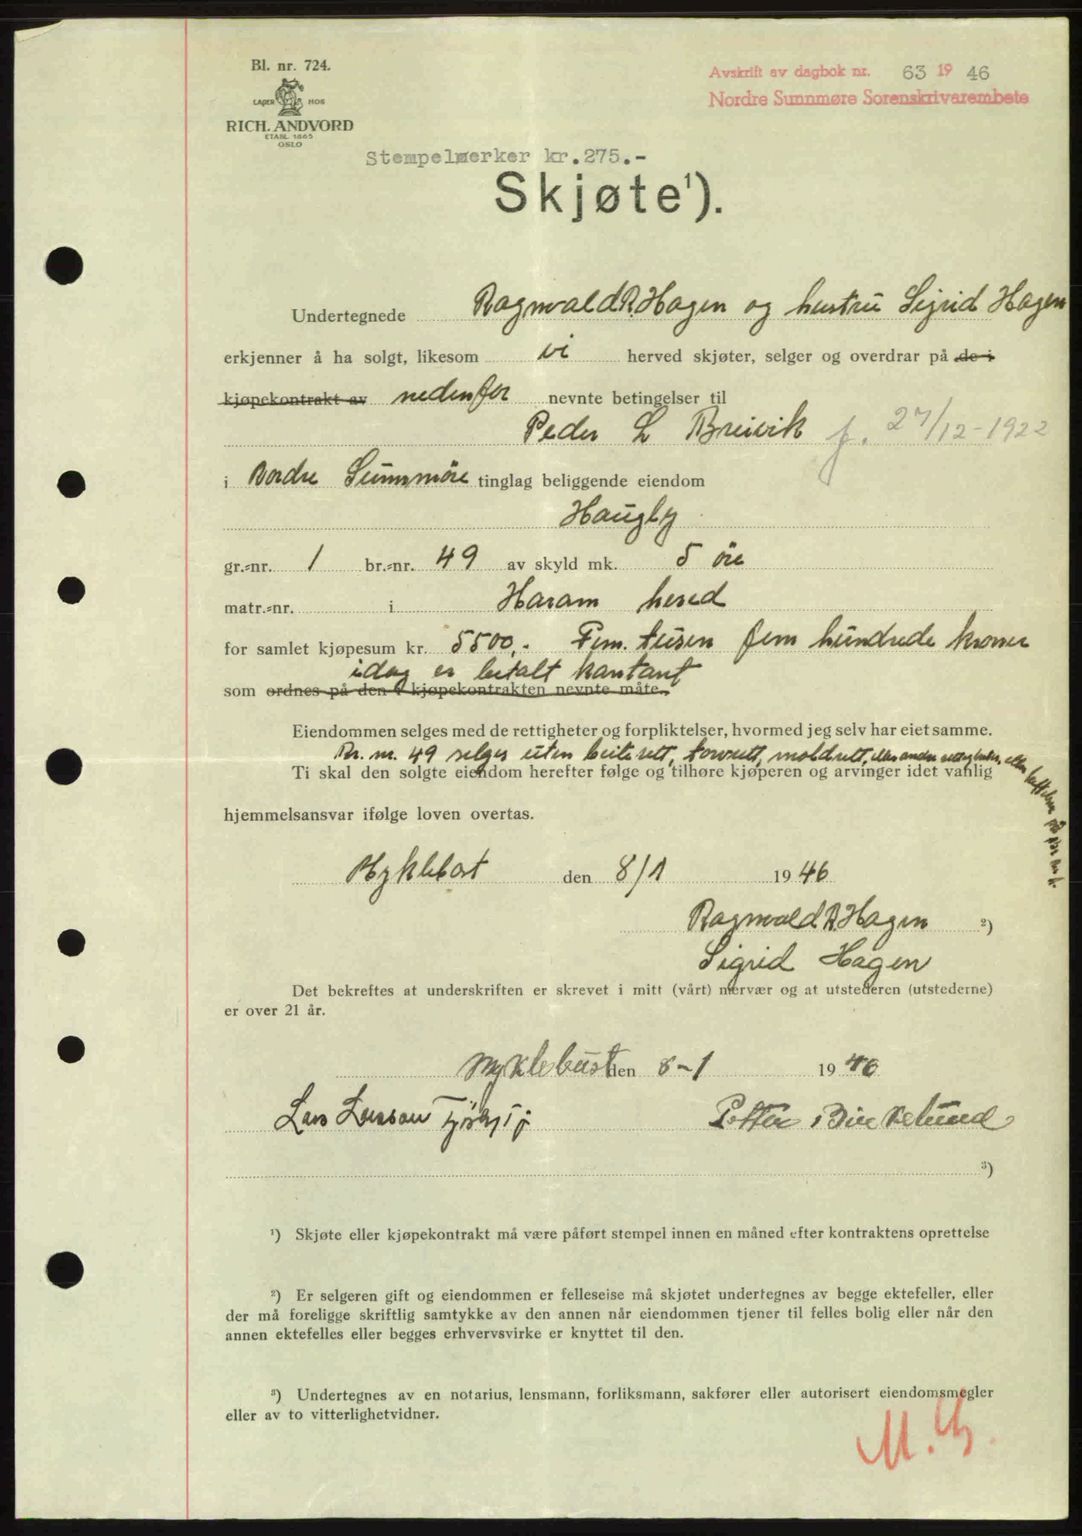 Bl. nr. 724.
LAGER HOS
RICH. ANDVORD
ETABL. 1865
OSLO
Avskrift av dagbok nr. 63 19 46
Nordre Sunnmøre Sorenskrivarembete
Stempelmerker kr.275.-
Skjøte¹).
Undertegnede Ragnvald R. Hagen og hustru Sigrid Hagen
erkjenner å ha solgt, likesom vi herved skjøter, selger og overdrar på de i
kjøpekontrakt av nedenfor nevnte betingelser til
Peder L Breivik f. 27/12-1922
i Nordre Sunnmöre tinglag beliggende eiendom
Haugly
gr.-nr. 1 br.-nr. 49 av skyld mk. 5 öre
matr.-nr. i Haram herred
for samlet kjøpesum kr. 5500,- Fem tusen fem hundrede kroner
idag er betalt kontant
som ordnes på den i kjøpekontrakten nevnte måte.
Eiendommen selges med de rettigheter og forpliktelser, hvormed jeg selv har eiet samme.
Br. nr. 49 selges uten beiterett, torvrett, moldrett, eller andre rettigheter, eller
Ti skal den solgte eiendom herefter følge og tilhøre kjøperen og arvinger idet vanlig
hjemmelsansvar ifølge loven overtas.
Myklebost den 8/1 1946
Ragnvald R. Hagen ²)
Sigrid Hagen
Det bekreftes at underskriften er skrevet i mitt (vårt) nærvær og at utstederen (utstederne)
er over 21 år.
Myklebust den 8-1 1946
Lars Petter
³)
¹) Skjøte eller kjøpekontrakt må være påført stempel innen en måned efter kontraktens oprettelse
²) Er selgeren gift og eiendommen er felleseise må skjøtet undertegnes av begge ektefeller, eller
der må foreligge skriftlig samtykke av den annen når eiendommen tjener til felles bolig eller når den
annen ektefelles eller begges erhvervsvirke er knyttet til den.
³) Undertegnes av en notarius, lensmann, forliksmann, sakfører eller autorisert eiendomsmegler
eller av to vitterlighetvidner.